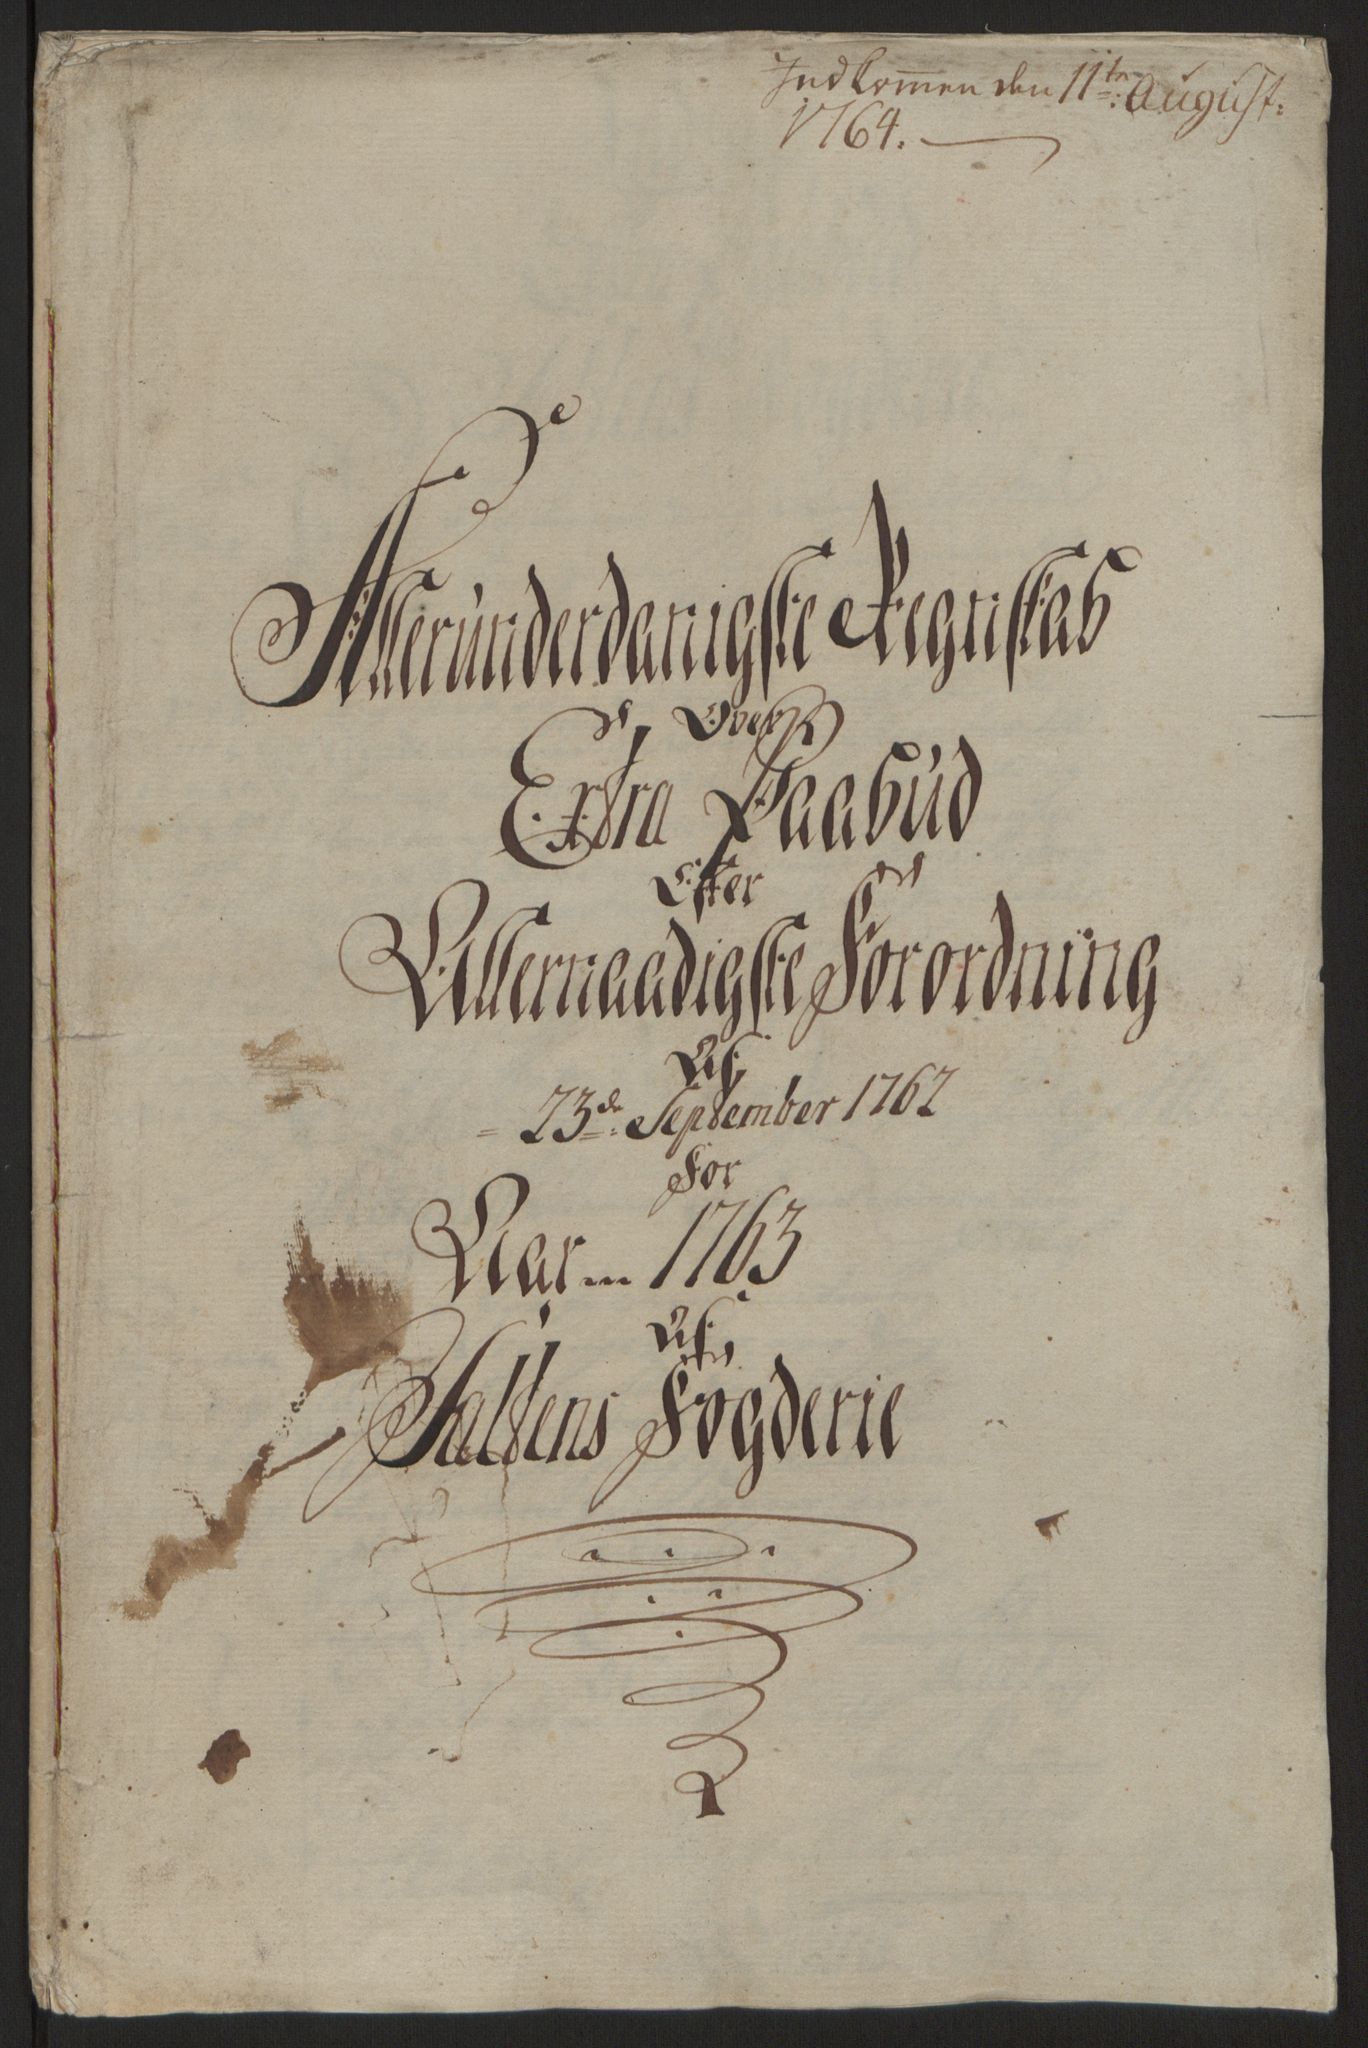 Indkom̄en den 11te August:
1764.
Alleründerdanigste Regnskab
Over
Extra Paabüd
Efter
Allernaadigste Forordning
Af
23de September 1762
For
Aar 1763
Af
Saltens Fogderie